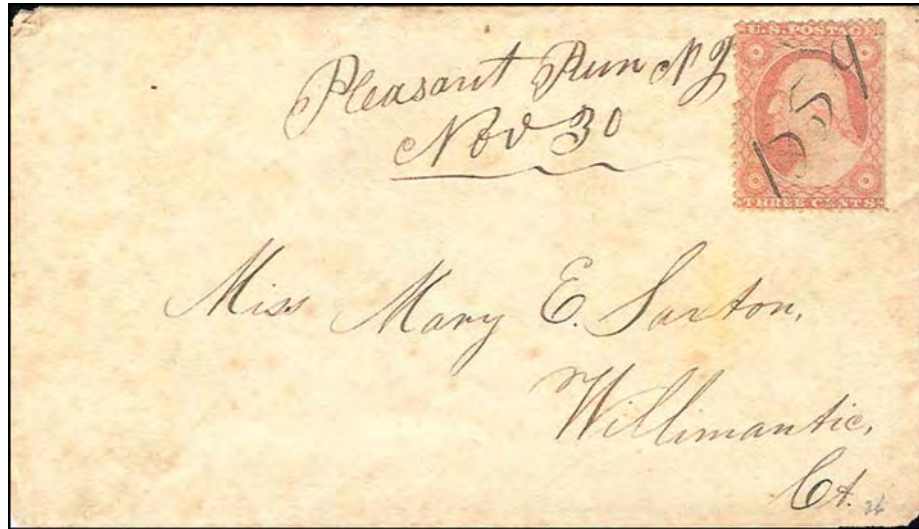 Pleasant Run NJ
Nov 30
U.S. POSTAGE
1859
THREE CENTS
Miss Mary E. Saxton,
Willimantic,
Ct.
26